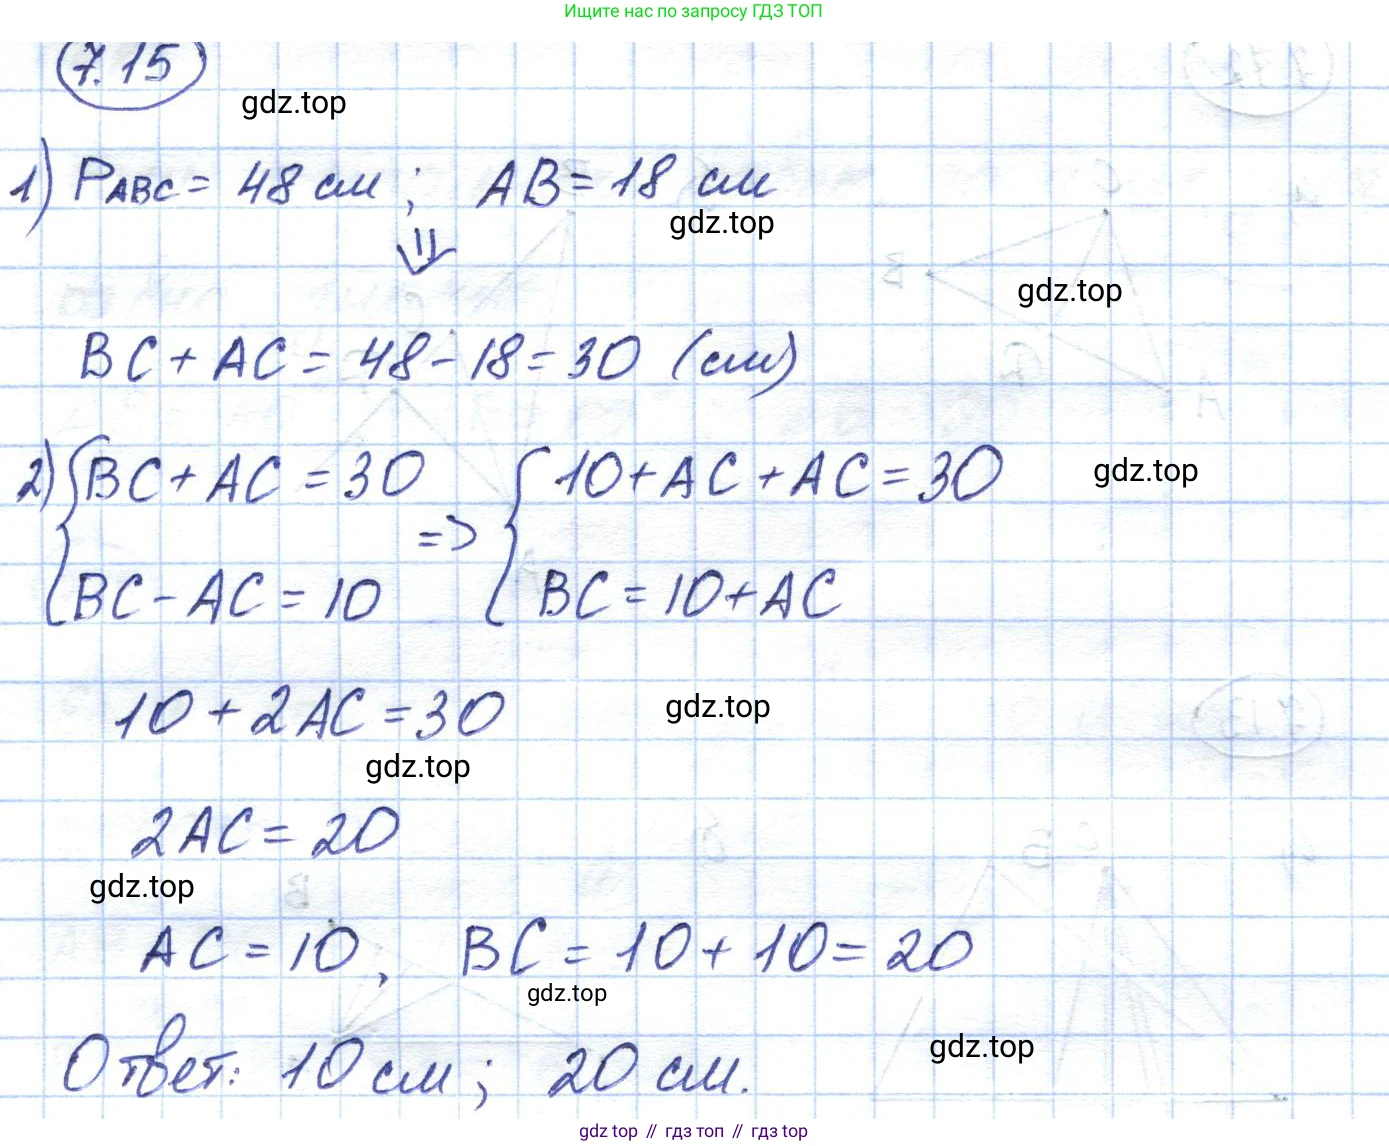 Ищите нас по запросу ГДЗ ТОП
7.15
gdz.top
1) PABC = 48 см ; AB = 18 см
gdz.top
⇓
gdz.top
BC + AC = 48 - 18 = 30 (см)
2) { BC + AC = 30 { 10 + AC + AC = 30
gdz.top
=>
BC - AC = 10 BC = 10 + AC
10 + 2AC = 30
gdz.top
gdz.top
2AC = 20
gdz.top
AC = 10, BC = 10 + 10 = 20
gdz.top
Ответ: 10 см ; 20 см.
gdz.top
gdz top // гдз топ // гдз top